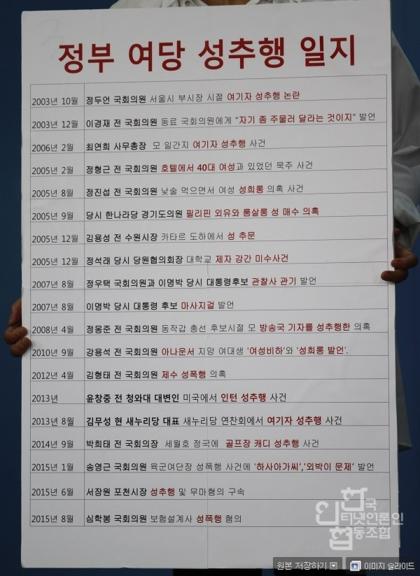 정부 여당 성추행 일지
2003년 10월 정두언 국회의원 서울시 부시장 시절 여기자 성추행 논란
2003년 12월 이경재 전 국회의원 동료 국회의원에게 "자기 좀 주물러 달라는 것이지" 발언
2006년 2월 최연희 사무총장 모 일간지 여기자 성추행 사건
2005년 2월 정형근 전 국회의원 호텔에서 40대 여성과 있었던 묵주 사건
2005년 8월 정진섭 전 국회의원 낮술 먹으면서 여성 성희롱 의혹 사건
2005년 9월 당시 한나라당 경기도의원 필리핀 외유와 룸살롱 성 매수 의혹
2005년 12월 김용성 전 수원시장 카타르 도하에서 성 추문
2005년 12월 정석래 당시 당원협의회장 대학교 제자 강간 미수사건
2007년 8월 정우택 국회의원과 이명박 당시 대통령후보 관찰사 관기 발언
2007년 8월 이명박 당시 대통령 후보 마사지걸 발언
2008년 4월 정몽준 전 국회의원 동작갑 총선 후보시절 모 방송국 기자를 성추행한 의혹
2010년 9월 강용석 전 국회의원 아나운서 지망 여대생 '여성비하'와 '성희롱 발언'.
2012년 4월 김형태 전 국회의원 제수 성폭행 의혹
2013년 윤창중 전 청와대 대변인 미국에서 인턴 성추행 사건
2013년 8월 김무성 현 새누리당 대표 새누리당 연찬회에서 여기자 성추행 사건
2014년 9월 박희태 전 국회의장 세월호 정국에 골프장 캐디 성추행 사건
2015년 1월 송영근 국회의원 육군여단장 성폭행 사건에 '하사아가씨','외박이 문제' 발언
2015년 6월 서장원 포천시장 성추행 및 무마혐의 구속
2015년 8월 심학봉 국회의원 보험설계사 성폭행 혐의
한국
인터넷언론인
협동조합
원본 저장하기
이미지 슬라이드